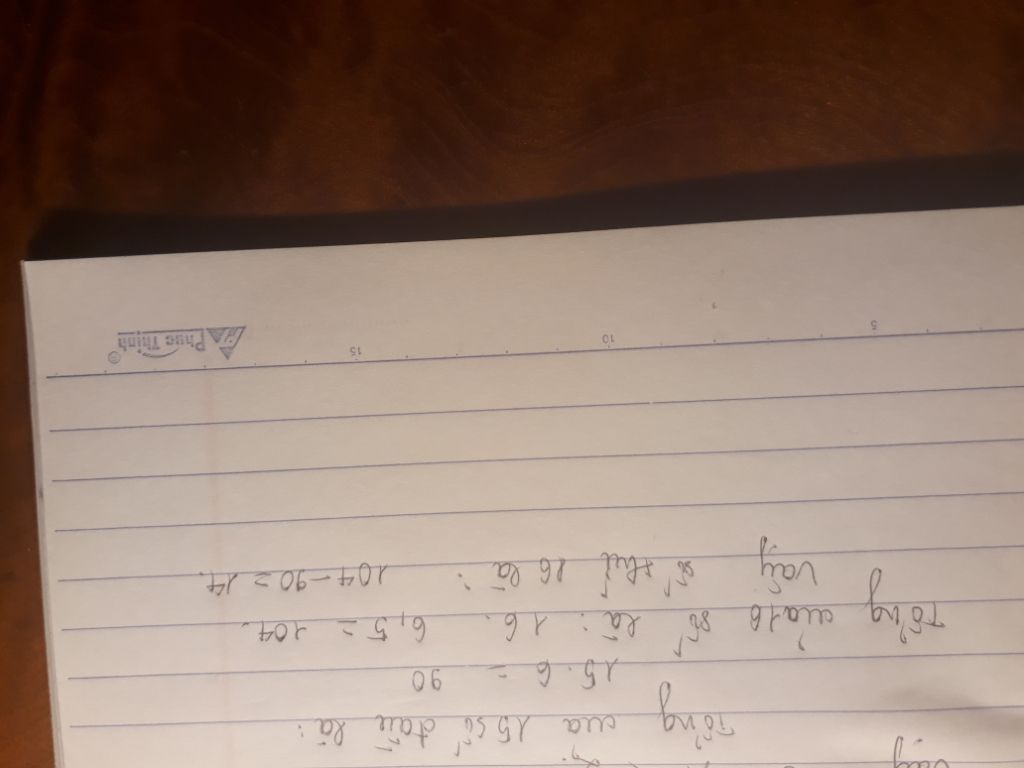 Vậy
Tổng của 15 số đầu là:
15 . 6 = 90
Tổng của 16 số là: 16 . 6,5 = 104.
Vậy số thứ 16 là: 104 - 90 = 14.
5 10 15 Phúc Thịnh®